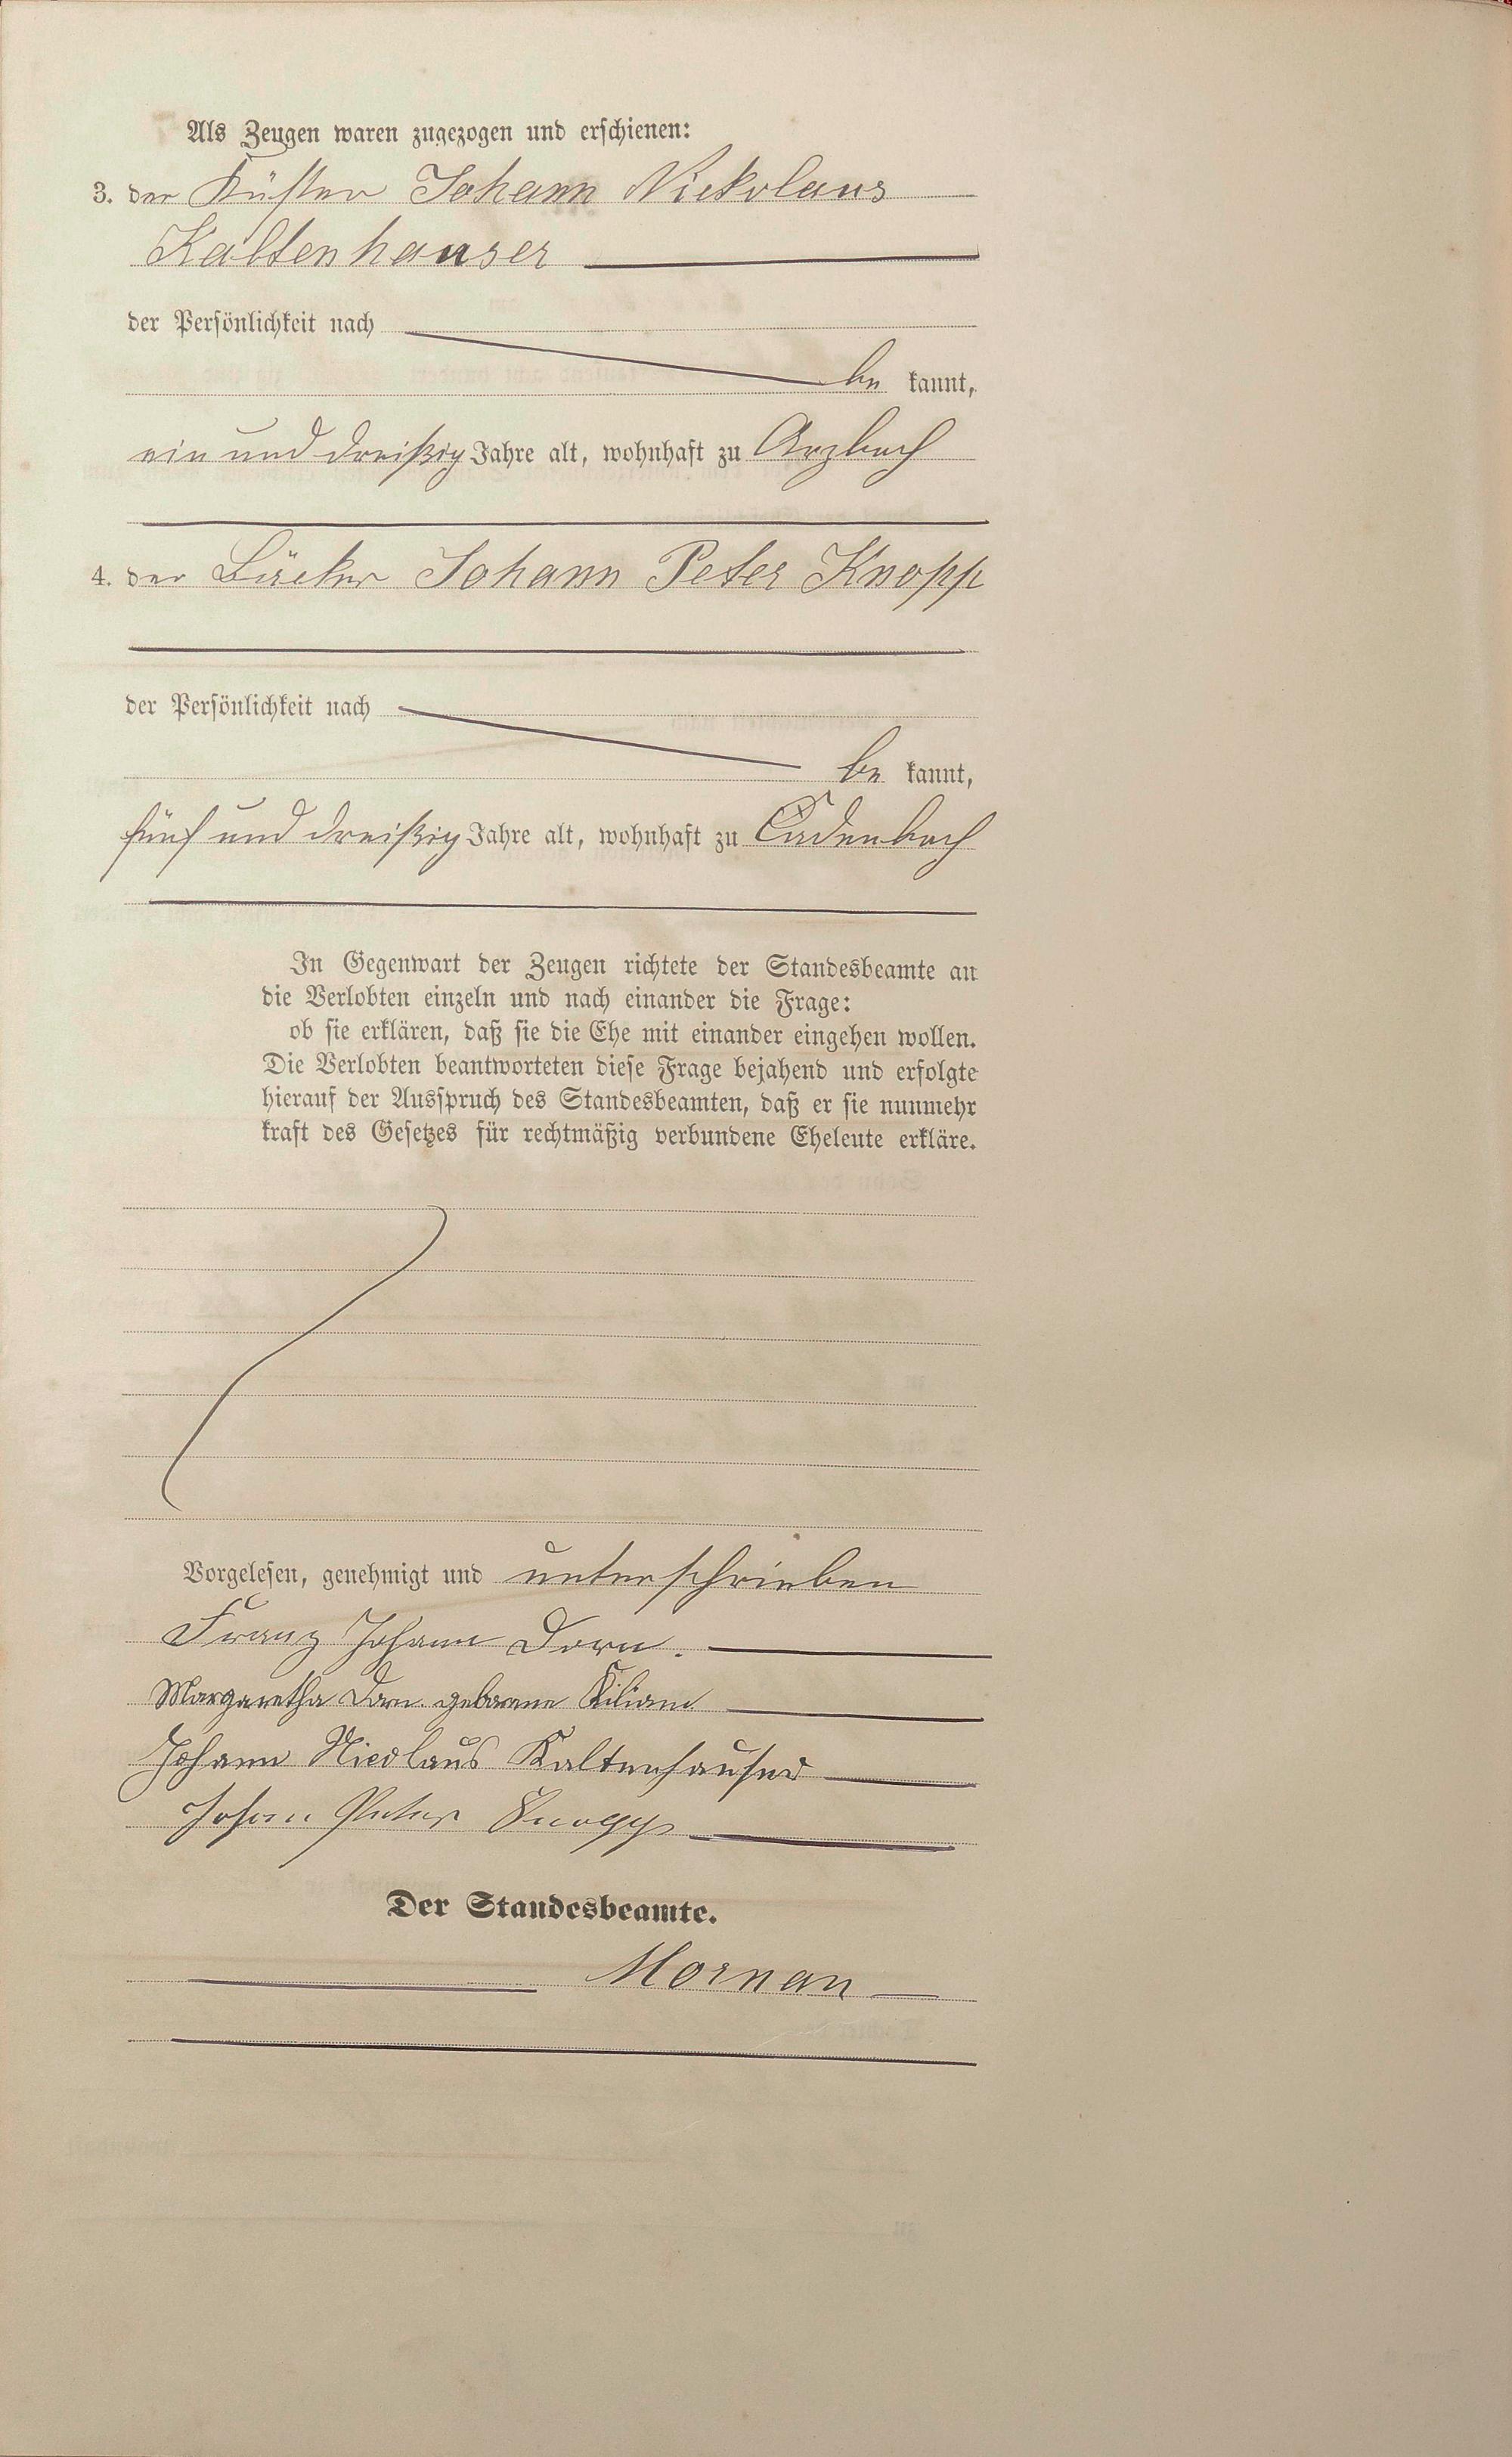 Als Zeugen waren zugezogen und erschienen:
3. der Küster Johann Nickolaus
Kaltenhäuser
der Persönlichkeit nach
be kannt,
ein und dreißig Jahre alt, wohnhaft zu Arzbach
4. der Bäcker Johann Peter Knopp
der Persönlichkeit nach
be kannt,
fünf und dreißig Jahre alt, wohnhaft zu Cadenbach
In Gegenwart der Zeugen richtete der Standesbeamte an
die Verlobten einzeln und nach einander die Frage:
ob sie erklären, daß sie die Ehe mit einander eingehen wollen.
Die Verlobten beantworteten diese Frage bejahend und erfolgte
hierauf der Ausspruch des Standesbeamten, daß er sie nunmehr
kraft des Gesetzes für rechtmäßig verbundene Eheleute erkläre.
Vorgelesen, genehmigt und unterschrieben
Franz Johann Dorn.
Margaretha Dorn geborene Kilian
Johann Nicolaus Kaltenhäuser
Johann Peter Knopp
Der Standesbeamte.